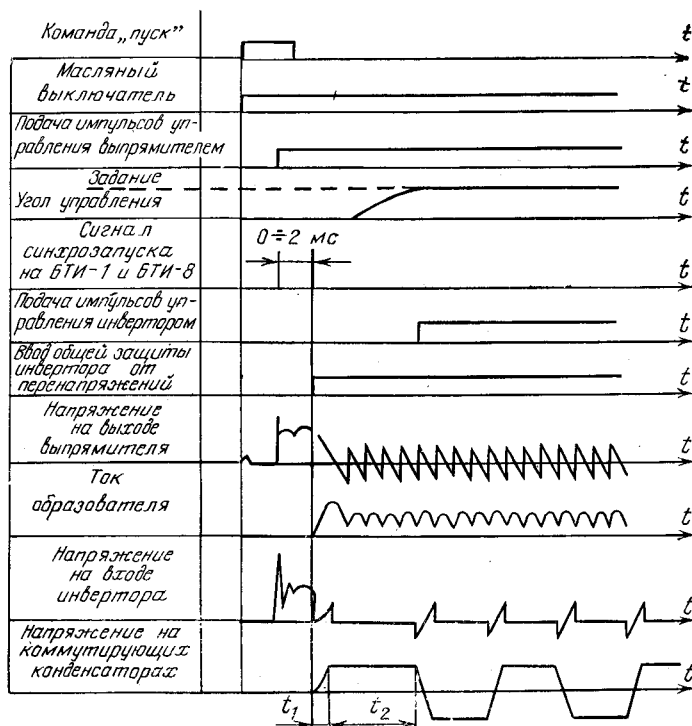 Команда „пуск”
t
Масляный
выключатель
t
Подача импульсов уп-
равления выпрямителем
t
Задание
Угол управления
t
Сигнал
синхрозапуска
на БТИ-1 и БТИ-8
0÷2 мс
t
Подача импульсов уп-
равления инвертором
t
Ввод общей защиты
инвертора от
перенапряжений
t
Напряжение
на выходе
выпрямителя
t
Ток
образователя
t
Напряжение
на входе
инвертора
t
Напряжение на
коммутирующих
конденсаторах
t
t1
t2